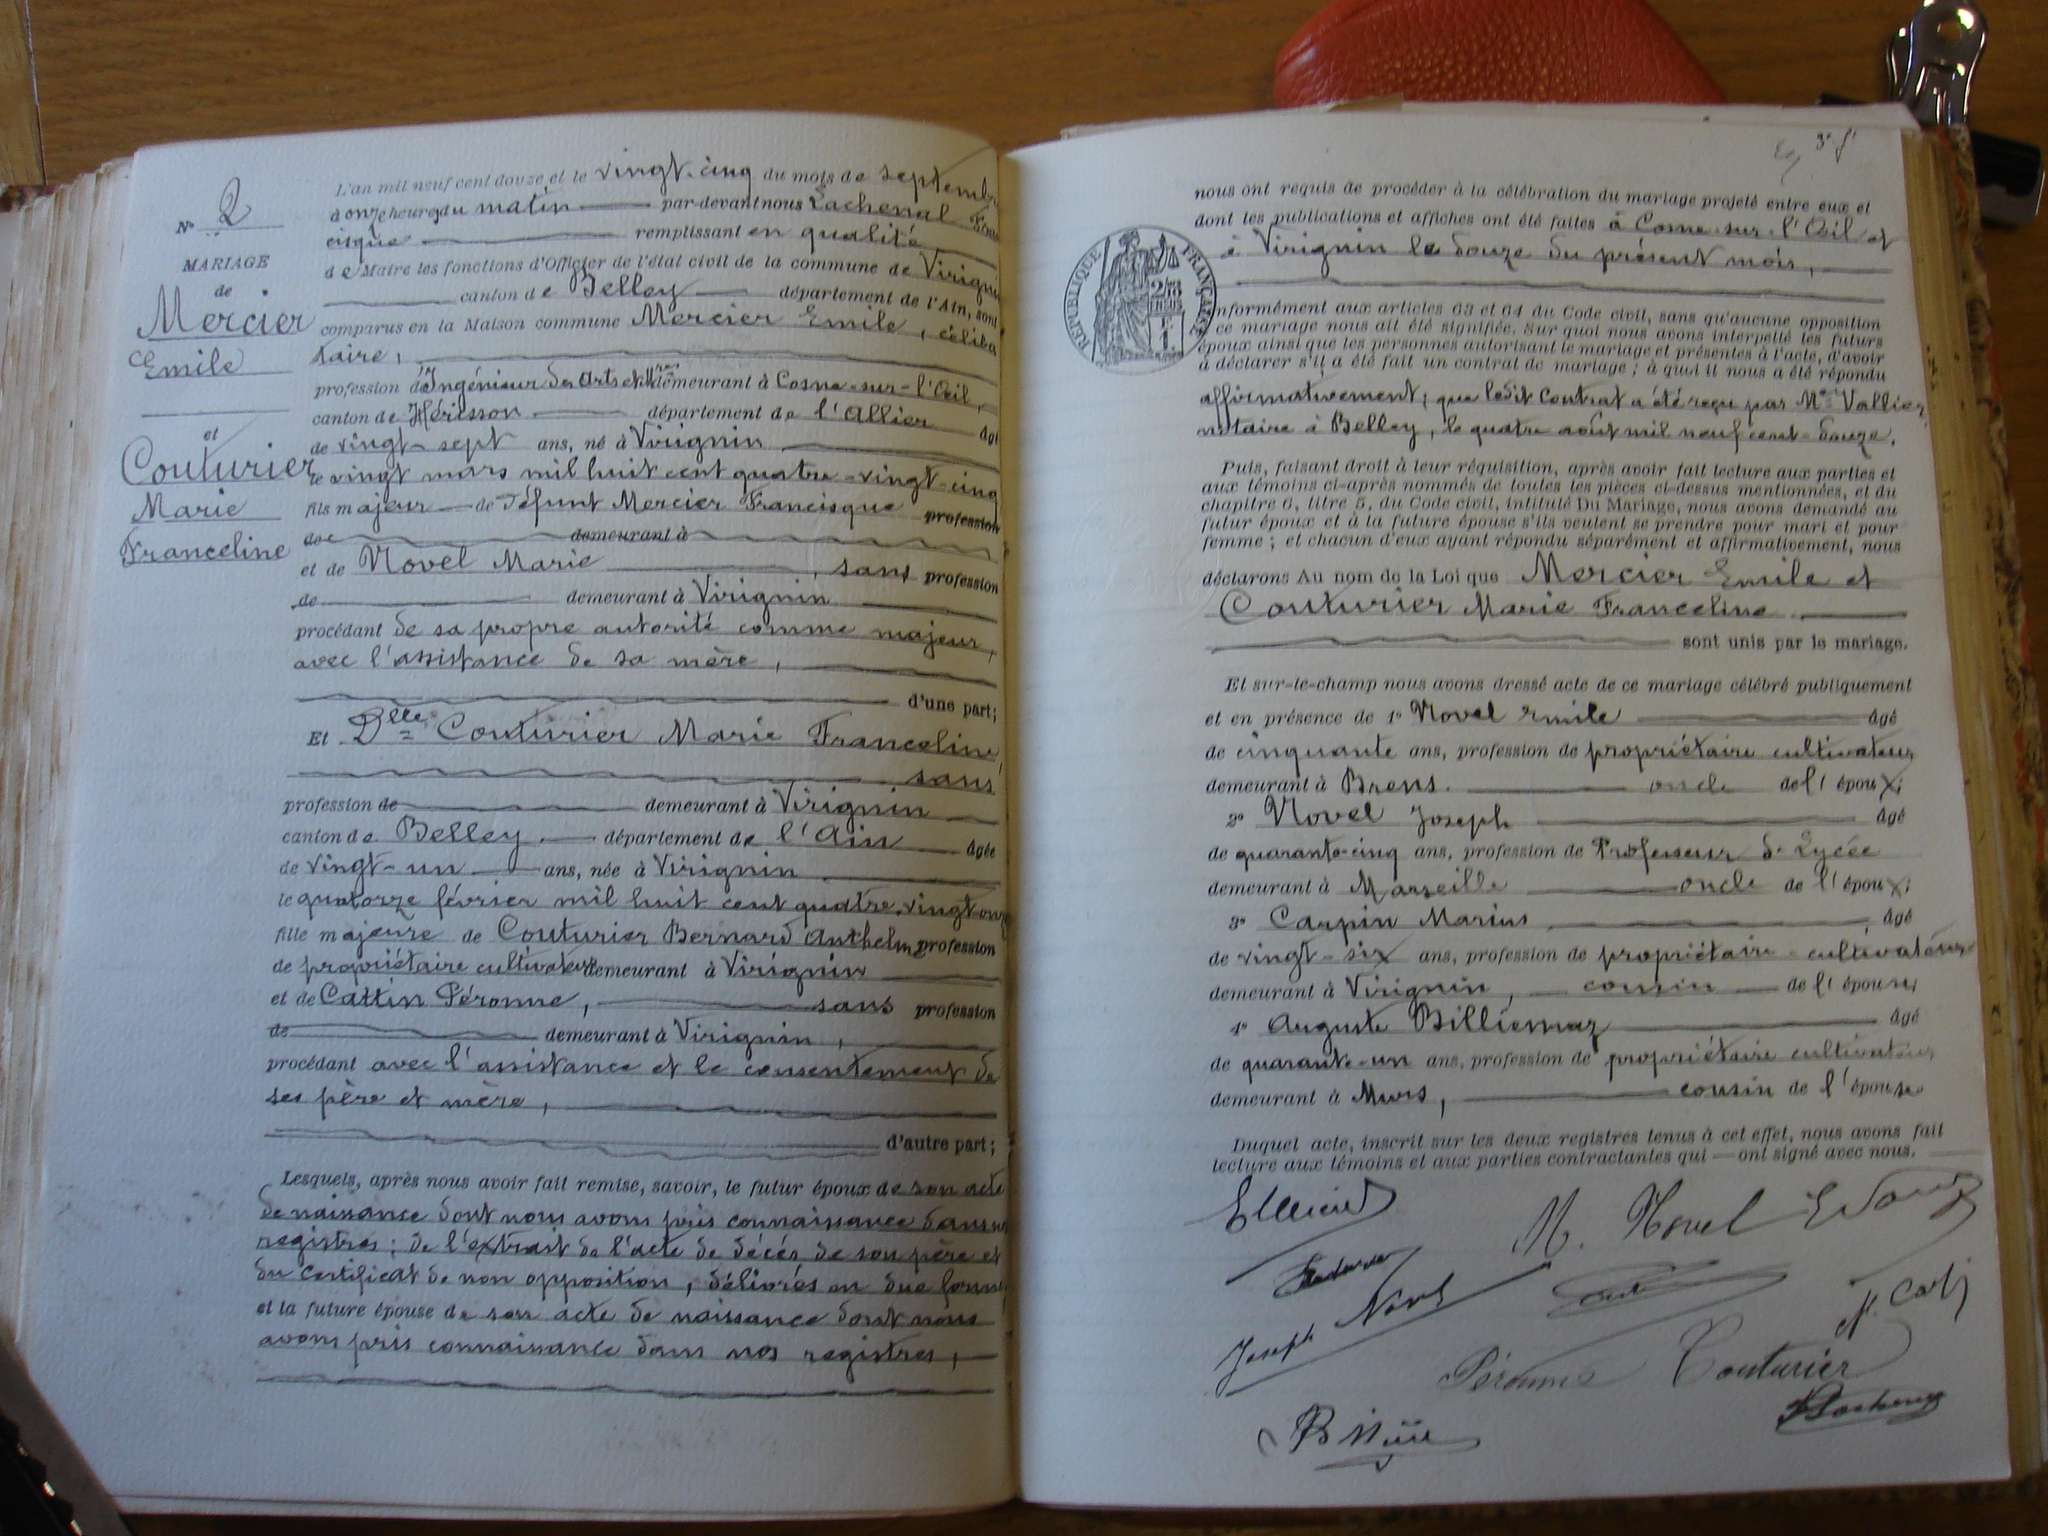 N° 2
MARIAGE
de
Mercier
Emile
et
Couturier
Marie
Franceline
L'an mil neuf cent douze et le vingt-cinq du mois de septemb
à onze heures du matin par-devant nous Lachenal Fran
cisque remplissant en qualité
de Maire les fonctions d'Officier de l'état civil de la commune de Virignin
canton de Belley département de l'Ain, sont
comparus en la Maison commune Mercier Emile, céliba
taire,
profession d'Ingénieur des Arts et Mres demeurant à Cosne-sur-l'Œil,
canton de Hérisson département de l'Allier âgé
de vingt-sept ans, né à Virignin
le vingt mars mil huit cent quatre-vingt-cinq
fils majeur de défunt Mercier Francisque profession
de demeurant à
et de Novel Marie, sans profession
de demeurant à Virignin
procédant de sa propre autorité comme majeur,
avec l'assistance de sa mère,
d'une part;
Et Dlle Couturier Marie Franceline
sans
profession de demeurant à Virignin
canton de Belley département de l'Ain âgée
de vingt-un ans, née à Virignin
le quatorze février mil huit cent quatre-vingt-onze
fille majeure de Couturier Bernard Anthelme profession
de propriétaire cultivateur demeurant à Virignin
et de Cattin Péronne, sans profession
de demeurant à Virignin,
procédant avec l'assistance et le consentement de
ses père et mère,
d'autre part;
Lesquels, après nous avoir fait remise, savoir, le futur époux de son acte
de naissance dont nous avons pris connaissance dans nos
registres; de l'extrait de l'acte de décès de son père et
du certificat de non opposition, délivrés en due forme
et la future épouse de son acte de naissance dont nous
avons pris connaissance dans nos registres,
3e f
nous ont requis de procéder à la célébration du mariage projeté entre eux et
dont les publications et affiches ont été faites à Cosne-sur-l'Œil et
à Virignin le douze du présent mois,
RÉPUBLIQUE FRANÇAISE
nformément aux articles 63 et 64 du Code civil, sans qu'aucune opposition
ce mariage nous ait été signifiée. Sur quoi nous avons interpellé les futurs
époux ainsi que les personnes autorisant le mariage et présentes à l'acte, d'avoir
à déclarer s'il a été fait un contrat de mariage; à quoi il nous a été répondu
affirmativement; que ledit contrat a été reçu par Me Vallier
notaire à Belley, le quatre août mil neuf cent-douze.
Puis, faisant droit à leur réquisition, après avoir fait lecture aux parties et
aux témoins ci-après nommés de toutes les pièces ci-dessus mentionnées, et du
chapitre 6, titre 5, du Code civil, intitulé Du Mariage, nous avons demandé au
futur époux et à la future épouse s'ils veulent se prendre pour mari et pour
femme; et chacun d'eux ayant répondu séparément et affirmativement, nous
déclarons Au nom de la Loi que Mercier Emile et
Couturier Marie Franceline
sont unis par le mariage.
Et sur-le-champ nous avons dressé acte de ce mariage célébré publiquement
et en présence de 1° Novel Emile âgé
de cinquante ans, profession de propriétaire cultivateur,
demeurant à Brens. oncle de l'époux;
2° Novel Joseph âgé
de quarante-cinq ans, profession de Professeur de Lycée
demeurant à Marseille oncle de l'époux;
3° Carpin Marius, âgé
de vingt-six ans, profession de propriétaire-cultivateur
demeurant à Virignin, cousin de l'époux;
4° Auguste Billiemaz âgé
de quarante-un ans, profession de propriétaire cultivateur
demeurant à Murs, cousin de l'épouse
Duquel acte, inscrit sur les deux registres tenus à cet effet, nous avons fait
lecture aux témoins et aux parties contractantes qui ont signé avec nous.
M. Novel
Joseph Novel
Péronne Couturier